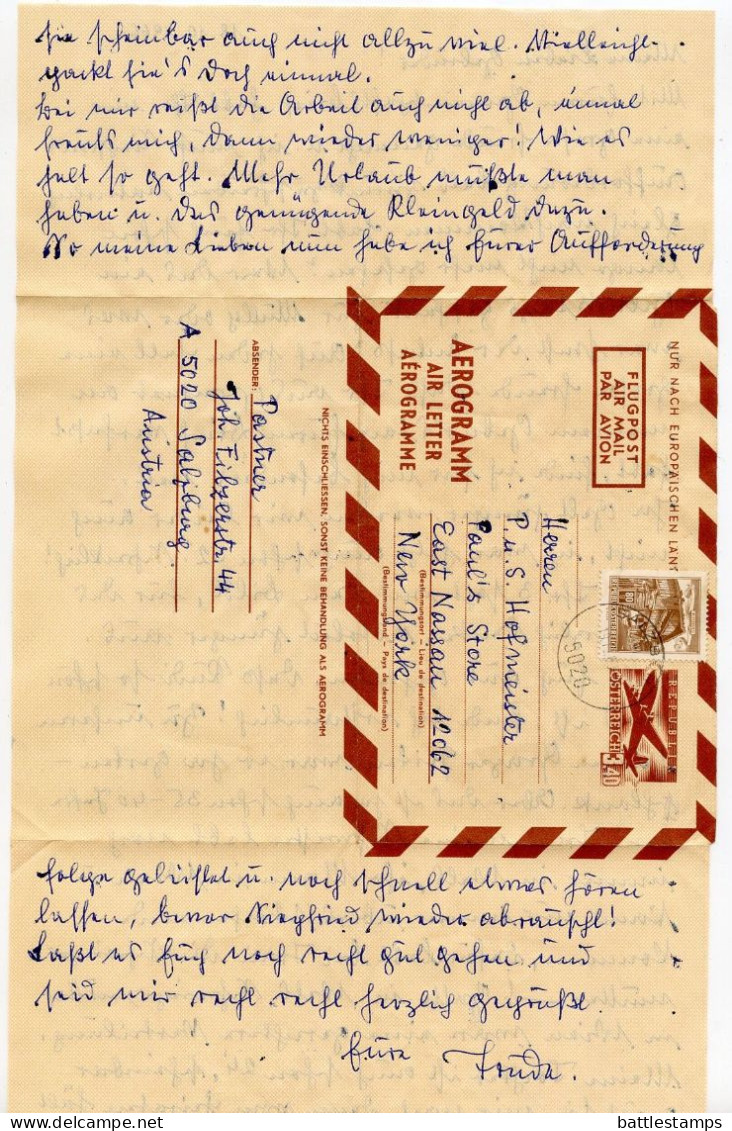 sie scheinbar auch nicht allzu viel. Vielleicht
packt sie's doch einmal.
Bei mir reißt die Arbeit auch nicht ab, einmal
freuts mich, dann wieder weniger! Wie es
halt so geht. Mehr Urlaub müßte man
haben u. das genügende Kleingeld dazu.
So meine Lieben nun habe ich Eurer Aufforderung
NUR NACH EUROPÄISCHEN LÄN
FLUGPOST
AIR MAIL
PAR AVION
AEROGRAMM
AIR LETTER
AÉROGRAMME
REPUBLIK
ÖSTERREICH
3.40
5020
Herren
P. u. S. Hofmeister
Paul's Store
East Nassau 12062
(Bestimmungsort - Lieu de destination)
New York
(Bestimmungsland - Pays de destination)
NICHTS EINSCHLIESSEN, SONST KEINE BEHANDLUNG ALS AEROGRAMM
ABSENDER: Pastner
Joh. Filzerstr. 44
A 5020 Salzburg
Austria
folge geleistet u. noch schnell etwas hören
lassen, bevor Siegfried wieder abrauscht!
Laßt es Euch noch recht gut gehen und
seid mir recht recht herzlich gegrüßt.
Eure
battlestamps